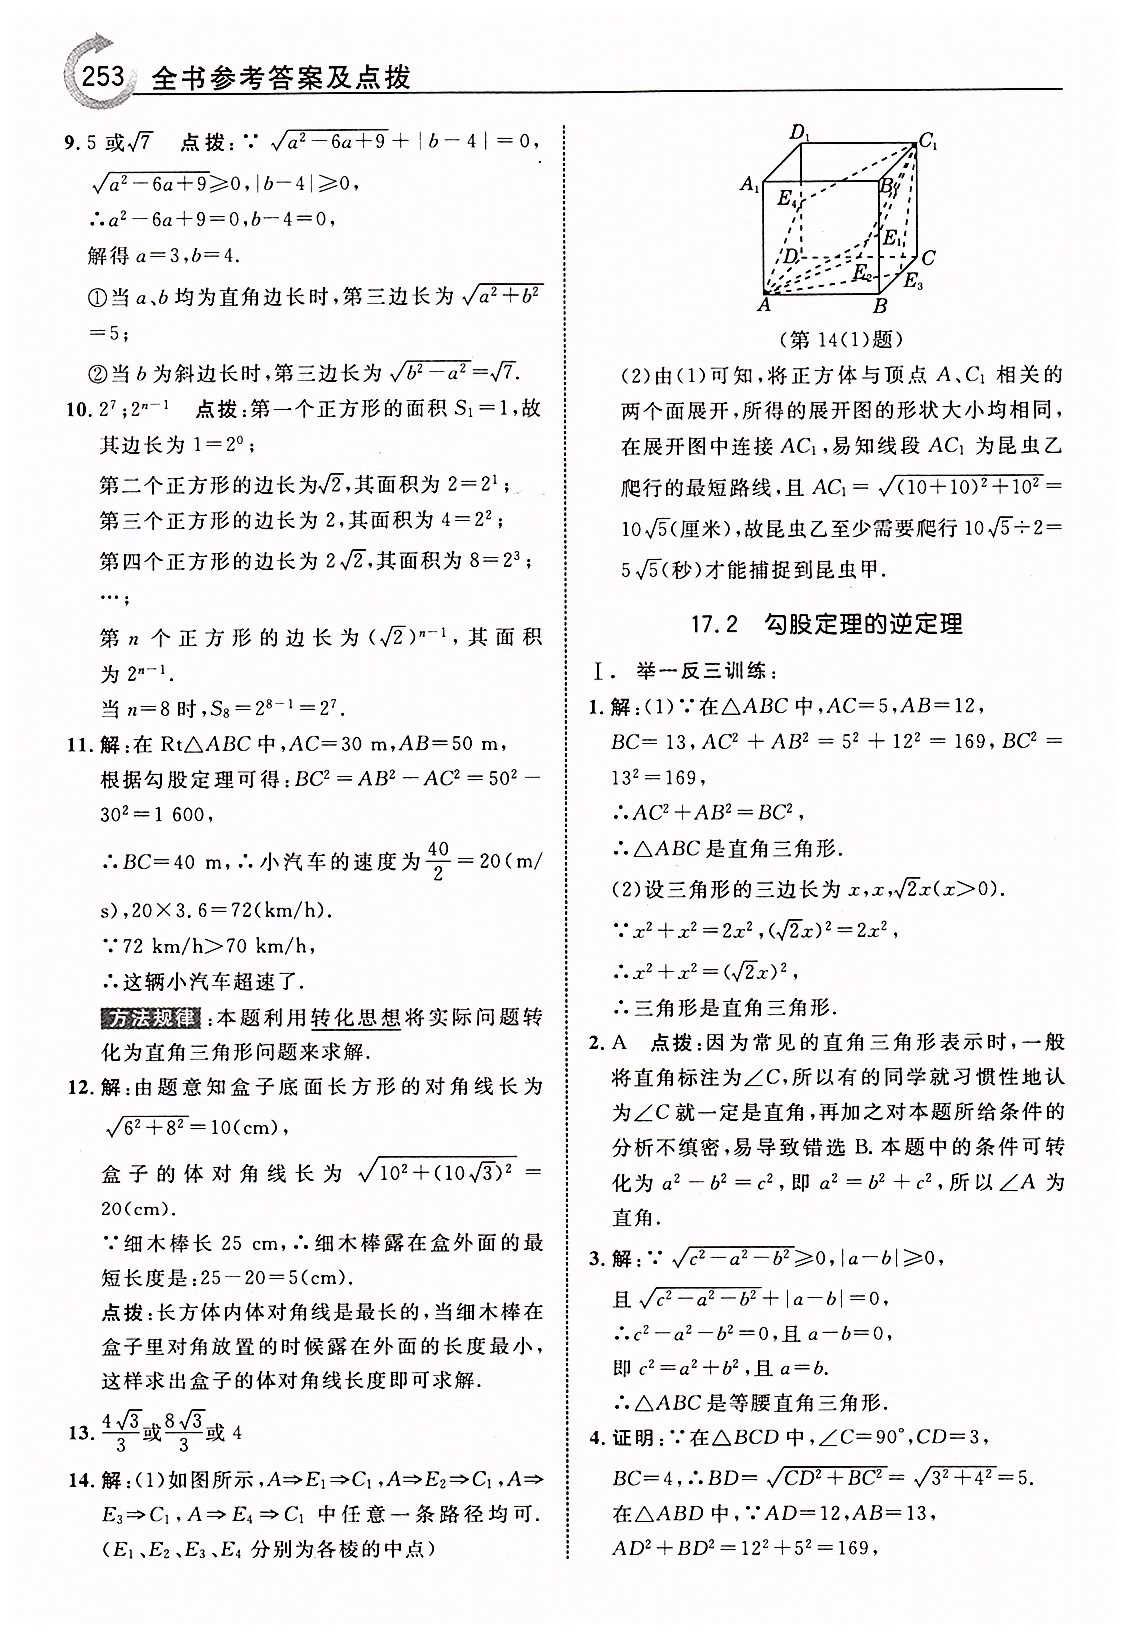 253 全书参考答案及点拨
9. 5 或√7　点拨:∵ √(a²-6a+9)+|b-4|=0,
√(a²-6a+9)≥0,|b-4|≥0,
∴a²-6a+9=0,b-4=0,
解得 a=3,b=4.
①当 a、b 均为直角边长时,第三边长为 √(a²+b²)
=5;
②当 b 为斜边长时,第三边长为 √(b²-a²)=√7.
10. 2⁷;2ⁿ⁻¹　点拨:第一个正方形的面积 S₁=1,故
其边长为 1=2⁰;
第二个正方形的边长为√2,其面积为 2=2¹;
第三个正方形的边长为 2,其面积为 4=2²;
第四个正方形的边长为 2√2,其面积为 8=2³;
…;
第 n 个正方形的边长为(√2)ⁿ⁻¹,其面积
为 2ⁿ⁻¹.
当 n=8 时,S₈=2⁸⁻¹=2⁷.
11. 解:在 Rt△ABC 中,AC=30 m,AB=50 m,
根据勾股定理可得:BC²=AB²-AC²=50²-
30²=1 600,
∴BC=40 m,∴小汽车的速度为 40/2=20(m/
s),20×3.6=72(km/h).
∵72 km/h>70 km/h,
∴这辆小汽车超速了.
方法规律:本题利用转化思想将实际问题转
化为直角三角形问题来求解.
12. 解:由题意知盒子底面长方形的对角线长为
√(6²+8²)=10(cm),
盒子的体对角线长为 √(10²+(10√3)²)=
20(cm).
∵细木棒长 25 cm,∴细木棒露在盒外面的最
短长度是:25-20=5(cm).
点拨:长方体内体对角线是最长的,当细木棒在
盒子里对角放置的时候露在外面的长度最小,
这样求出盒子的体对角线长度即可求解.
13. 4√3/3或8√3/3或 4
14. 解:(1)如图所示,A⇒E₁⇒C₁,A⇒E₂⇒C₁,A⇒
E₃⇒C₁,A⇒E₄⇒C₁ 中任意一条路径均可.
(E₁、E₂、E₃、E₄ 分别为各棱的中点)
D₁
C₁
A₁
B₁
E₄
E₁
D
C
E₂
E₃
A
B
(第 14(1)题)
(2)由(1)可知,将正方体与顶点 A、C₁ 相关的
两个面展开,所得的展开图的形状大小均相同,
在展开图中连接 AC₁,易知线段 AC₁ 为昆虫乙
爬行的最短路线,且 AC₁=√((10+10)²+10²)=
10√5(厘米),故昆虫乙至少需要爬行 10√5÷2=
5√5(秒)才能捕捉到昆虫甲.
17.2　勾股定理的逆定理
Ⅰ. 举一反三训练:
1. 解:(1)∵在△ABC 中,AC=5,AB=12,
BC=13,AC²+AB²=5²+12²=169,BC²=
13²=169,
∴AC²+AB²=BC²,
∴△ABC 是直角三角形.
(2)设三角形的三边长为 x,x,√2x(x>0).
∵x²+x²=2x²,(√2x)²=2x²,
∴x²+x²=(√2x)²,
∴三角形是直角三角形.
2. A　点拨:因为常见的直角三角形表示时,一般
将直角标注为∠C,所以有的同学就习惯性地认
为∠C 就一定是直角,再加之对本题所给条件的
分析不缜密,易导致错选 B. 本题中的条件可转
化为 a²-b²=c²,即 a²=b²+c²,所以∠A 为
直角.
3. 解:∵ √(c²-a²-b²)≥0,|a-b|≥0,
且 √(c²-a²-b²)+|a-b|=0,
∴c²-a²-b²=0,且 a-b=0,
即 c²=a²+b²,且 a=b.
∴△ABC 是等腰直角三角形.
4. 证明:∵在△BCD 中,∠C=90°,CD=3,
BC=4,∴BD=√(CD²+BC²)=√(3²+4²)=5.
在△ABD 中,∵AD=12,AB=13,
AD²+BD²=12²+5²=169,